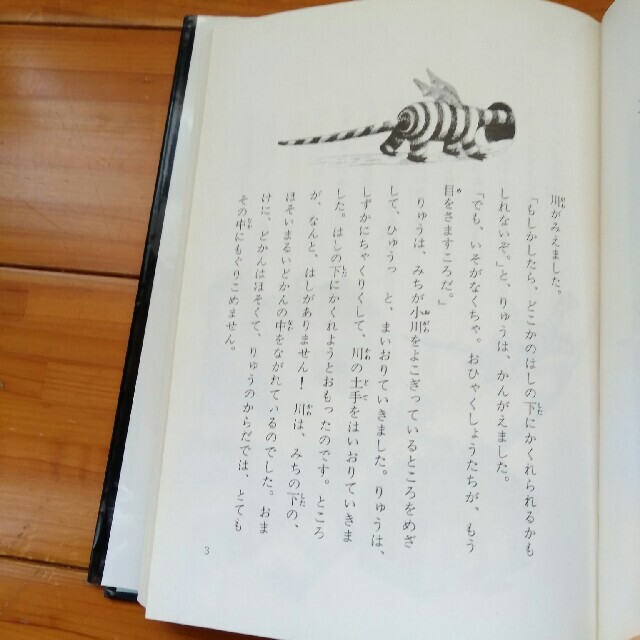 川がみえました。
「もしかしたら、どこかのはしの下にかくれられるかも
しれないぞ。」と、りゅうは、かんがえました。
「でも、いそがなくちゃ。おひゃくしょうたちが、もう
目をさますころだ。」
りゅうは、みちが小川をよこぎっているところをめざ
して、ひゅうっ と、まいおりていきました。りゅうは、
しずかにちゃくりくして、川の土手をはいおりていきま
した。はしの下にかくれようとおもったのです。ところ
が、なんと、はしがありません! 川は、みちの下の、
ほそいまるいどかんの中をながれているのでした。おま
けに、どかんはほそくて、りゅうのからだでは、とても
その中にもぐりこめません。
3